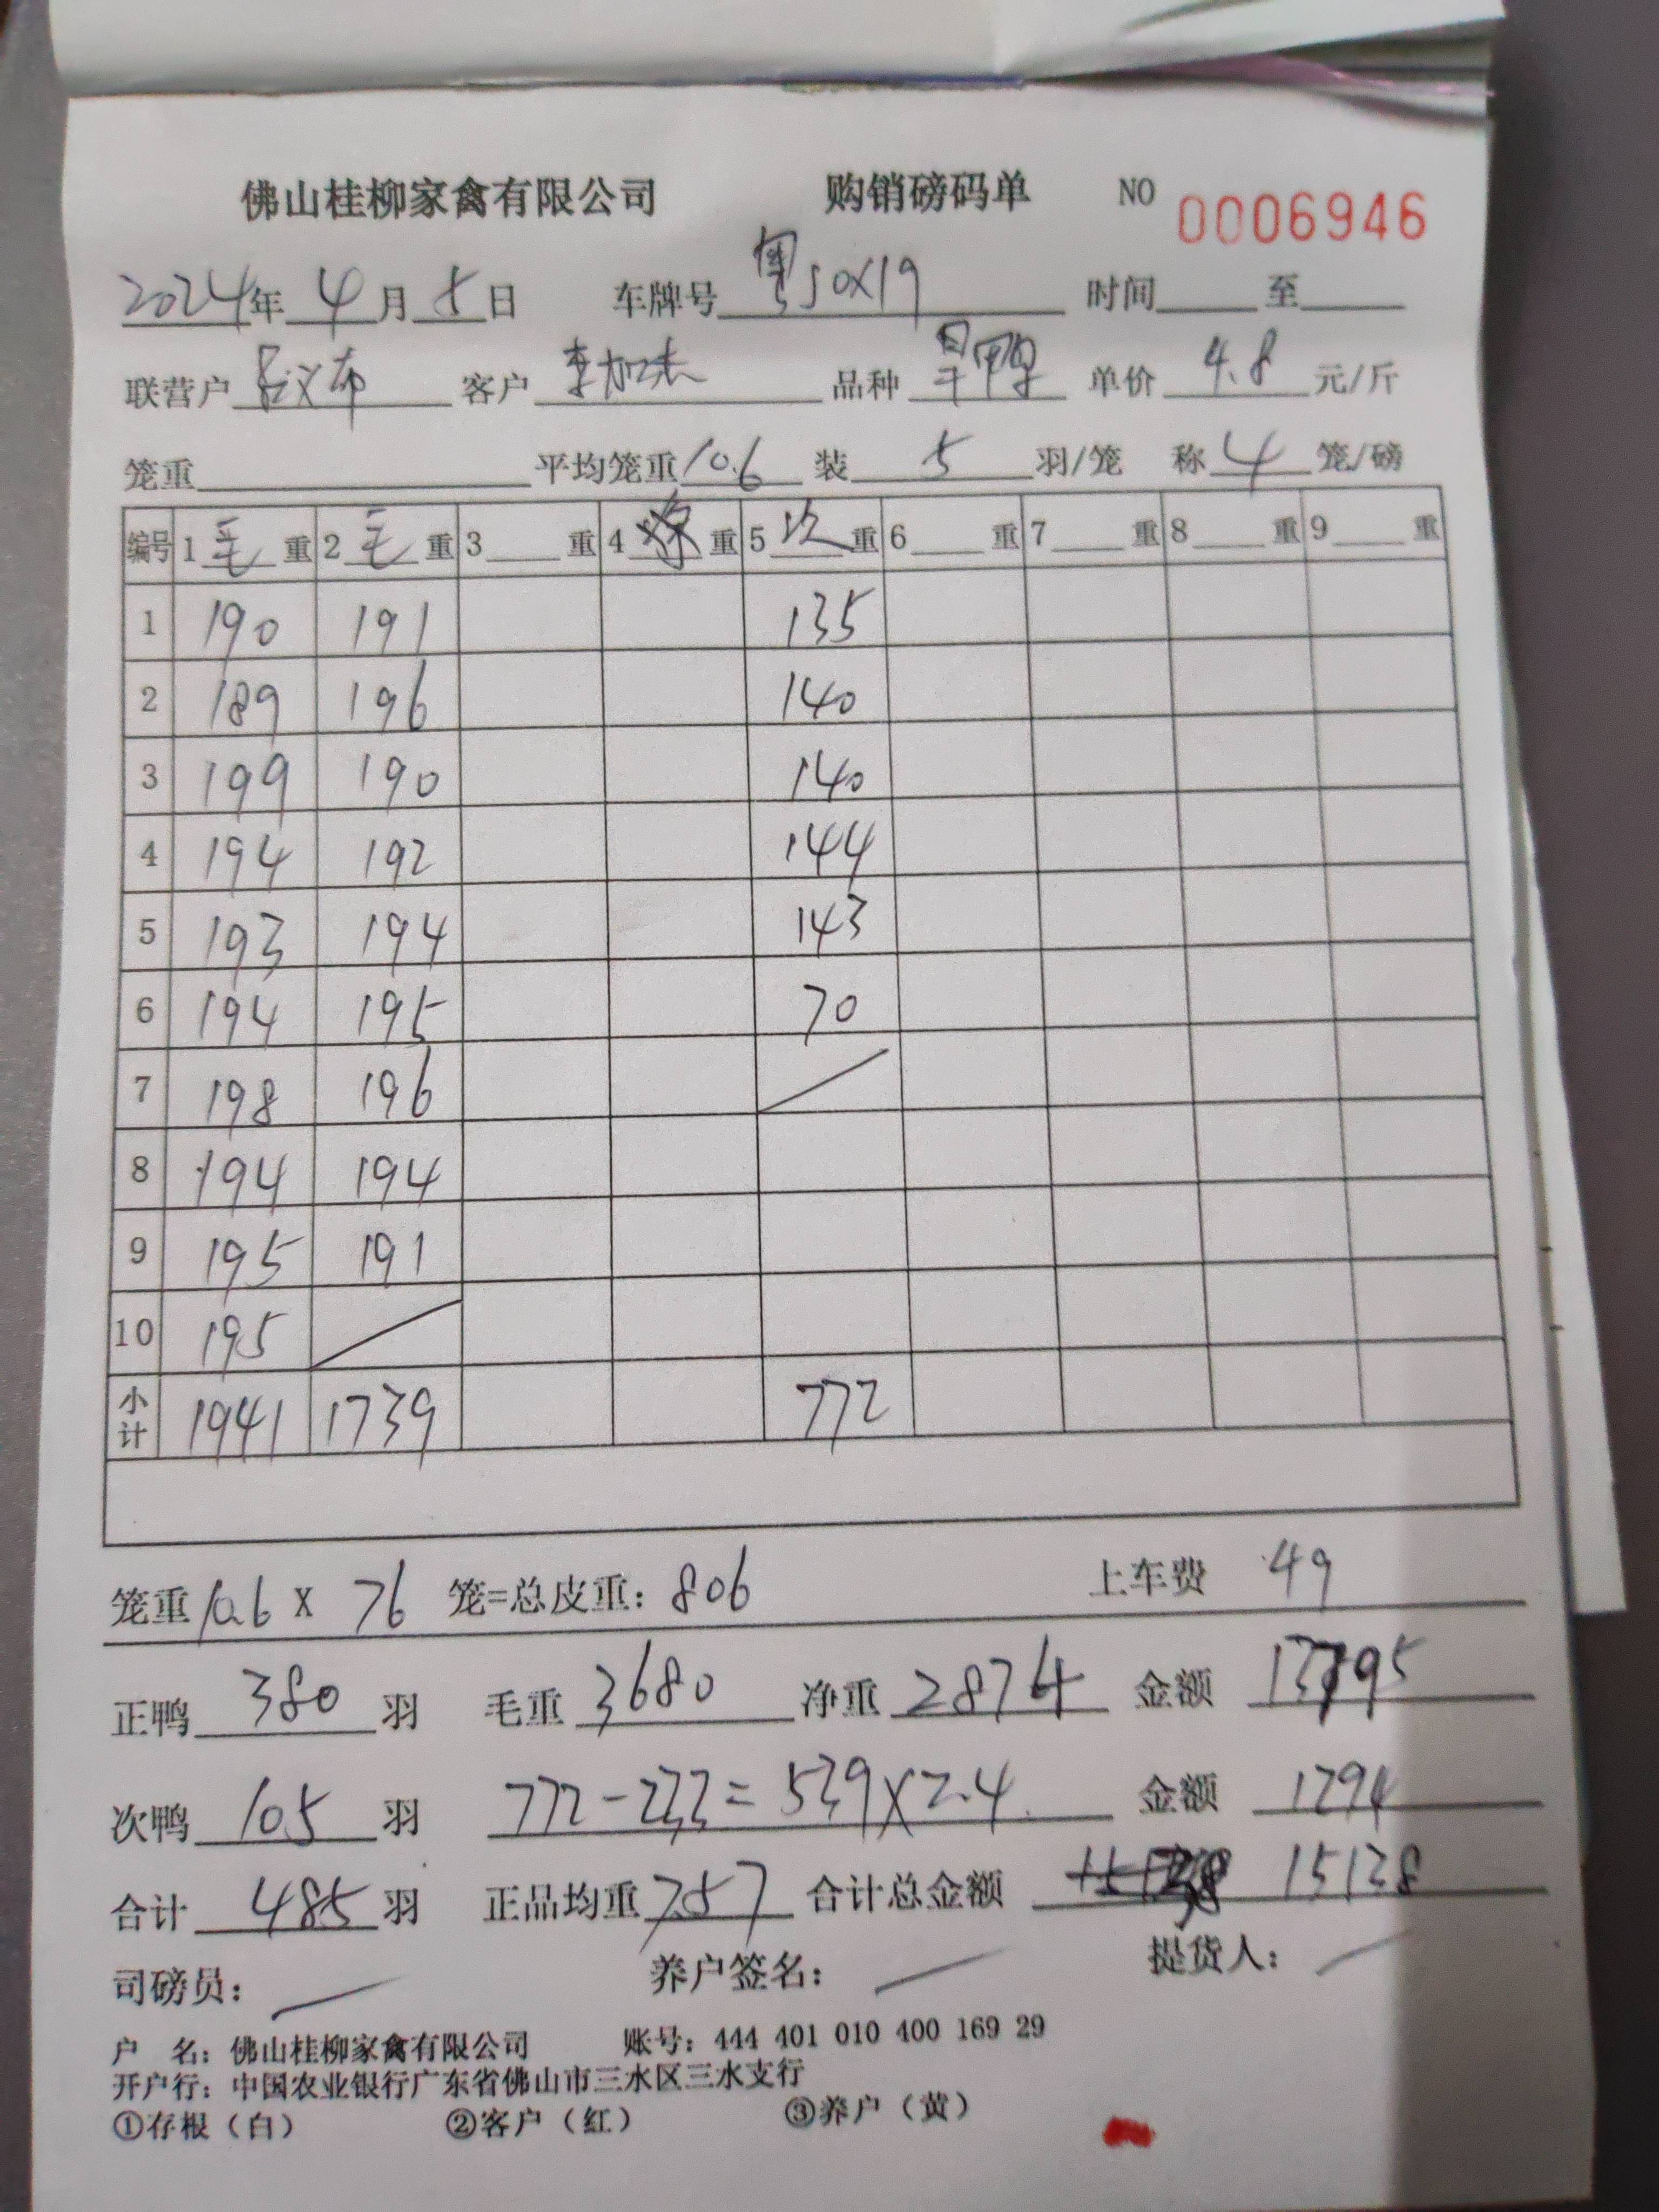 佛山桂柳家禽有限公司 购销磅码单 NO 0006946
2024年 4月 5日 车牌号 粤J0X19 时间 至
联营户 客户 李加杰 品种 旱鸭 单价 4.8 元/斤
笼重 平均笼重 10.6 装 5 羽/笼 称 4 笼/磅
编号 1 毛 重 2 毛 重 3 重 4 重 5 次 重 6 重 7 重 8 重 9 重
1 190 191 135
2 189 196 140
3 199 190 140
4 194 192 144
5 193 194 143
6 194 195 70
7 198 196
8 194 194
9 195 191
10 195
小计 1941 1739 772
笼重 10.6 X 76 笼=总皮重: 806 上车费 49
正鸭 380 羽 毛重 3680 净重 2874 金额 13795
次鸭 105 羽 772-233=539X2.4 金额 1294
合计 485 羽 正品均重 7.57 合计总金额 15138
司磅员: 养户签名: 提货人:
户 名: 佛山桂柳家禽有限公司 账号: 444 401 010 400 169 29
开户行: 中国农业银行广东省佛山市三水区三水支行
①存根（白） ②客户（红） ③养户（黄）